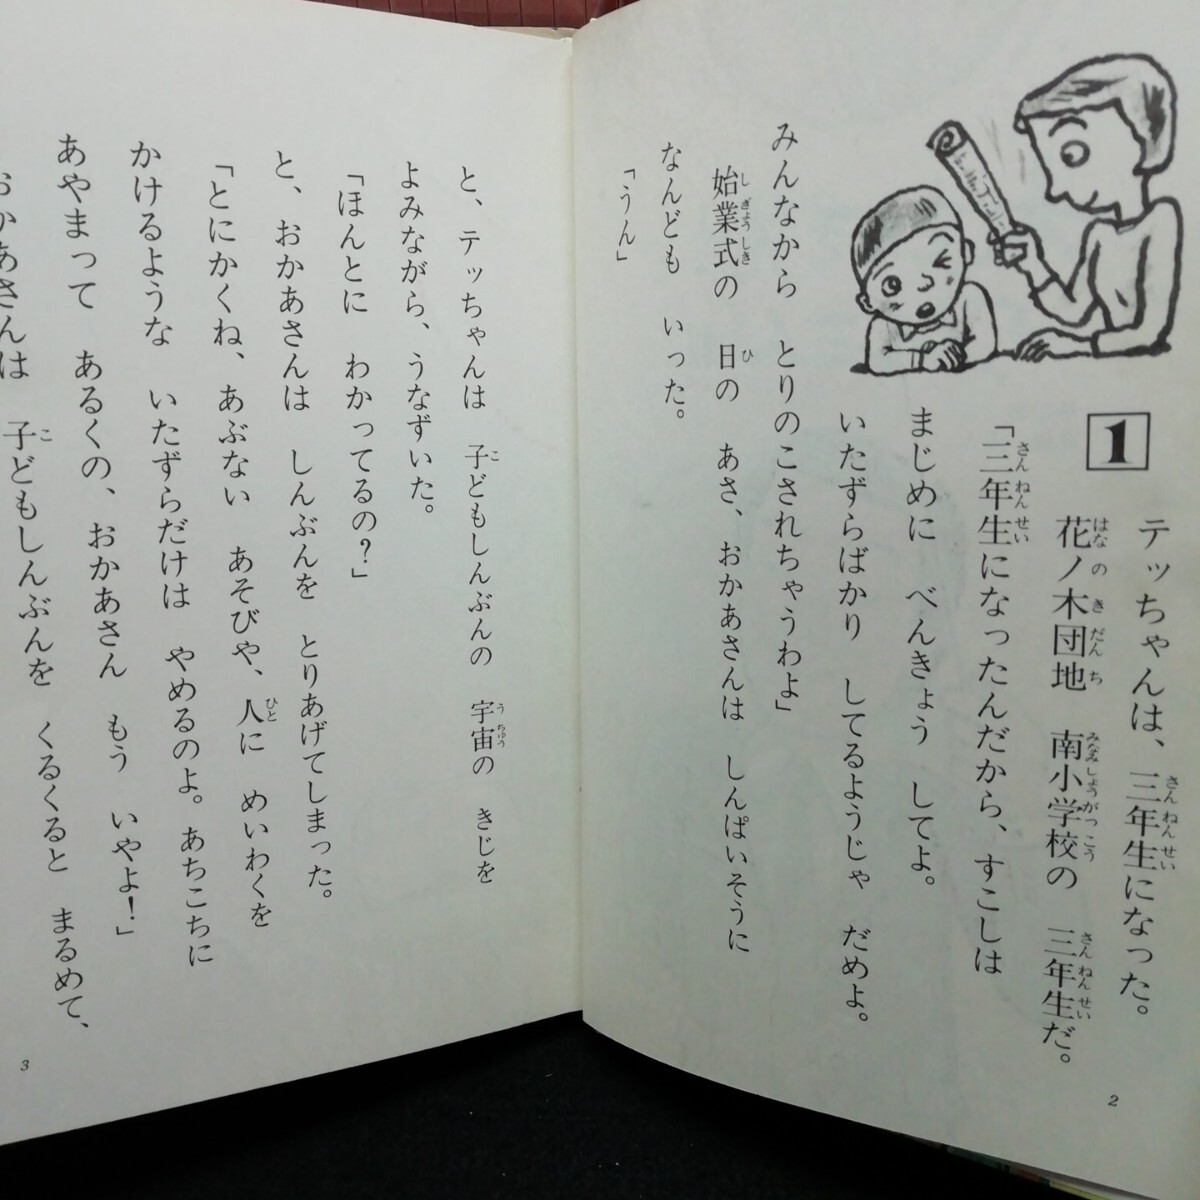 1
テッちゃんは、三年生になった。
花ノ木団地　南小学校の　三年生だ。
「三年生になったんだから、すこしは
まじめに　べんきょう　してよ。
いたずらばかり　してるようじゃ　だめよ。
みんなから　とりのこされちゃうわよ」
始業式の　日の　あさ、おかあさんは　しんぱいそうに
なんども　いった。
「うん」
2
と、テッちゃんは　子どもしんぶんの　宇宙の　きじを
よみながら、うなずいた。
「ほんとに　わかってるの？」
と、おかあさんは　しんぶんを　とりあげてしまった。
「とにかくね、あぶない　あそびや、人に　めいわくを
かけるような　いたずらだけは　やめるのよ。あちこちに
あやまって　あるくの、おかあさん　もう　いやよ！」
おかあさんは　子どもしんぶんを　くるくると　まるめて、
3